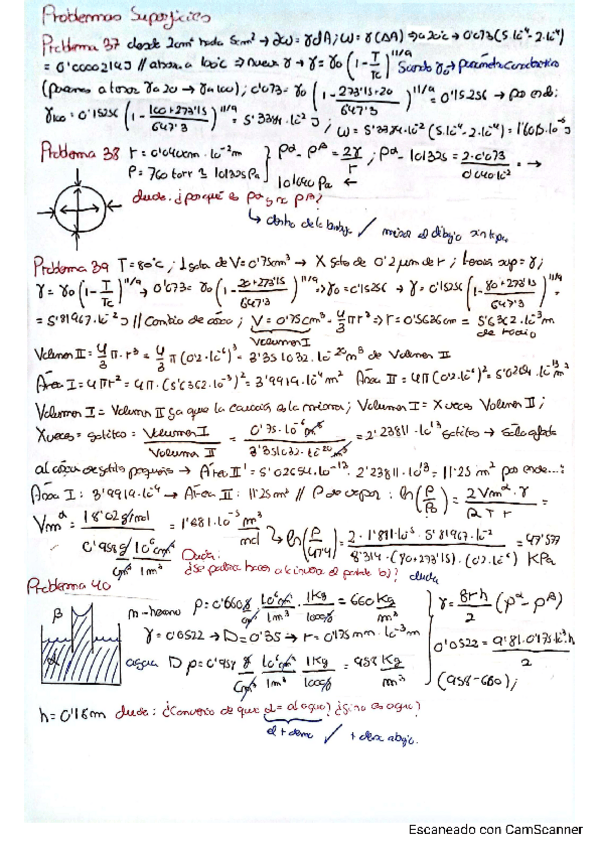 Problemas Superficies
Problema 37 desde 2cm² hasta 5cm² → ∂ω = γdA; ω = γ(ΔA) ⇒ 20ºC → 0'073(5·10⁻⁴-2·10⁻⁴)
= 0'0000219J // ahora a 100ºC ⇒ nueva γ → γ = γ₀(1 - T/Tc)^11/9 Siendo γ₀ → parámetro
(γ₀ 20 → γ₀ 100); 0'073 = γ₀(1 - 273'15+20/647'3)^11/9 = 0'15256 → por ende:
γ₁₀₀ = 0'15256(1 - 100+273'15/647'3)^11/9 = 10⁻² J; ω = 10⁻²(5·10⁻⁴-2·10⁻⁴) = 10⁻⁵J
Problema 38 r = 0'040cm·10⁻²m } pα - pβ = 2γ/r; pα - 101325 = 2·0'073/0'040·10⁻² = →
P = 760 torr ≈ 101325 Pa } Pa ←
duda: ¿porqué es pα y no pβ?
↳ dentro de la burbuja ✓ mirar el dibujo
Problema 39 T = 80ºC; 1 gota de V = 0'75cm³ → X gotas de 0'2 μm de r; sup = γ;
γ = γ₀(1 - T/Tc)^11/9 → 0'073 = γ₀(1 - 20+273'15/647'3)^11/9 ⇒ γ₀ = 0'15256 → γ = 0'15256(1 - 80+273'15/647'3)^11/9
= 5'81967·10⁻² J // Cambio de área; V = 0'75cm³ = 4/3 πr³ ⇒ r = 0'5636cm = 5'6362·10⁻³m
Volumen I de radio
Volumen II = 4/3 π·r³ = 4/3 π(0'2·10⁻⁶)³ = 3'351032·10⁻²⁰ m³ de Volumen II
Área I = 4πr² = 4π·(5'6362·10⁻³)² = 3'9919·10⁻⁴ m² Área II = 4π(0'2·10⁻⁶)² = 5'02654·10⁻¹³ m²
Volumen I = Volumen II ya que la cantidad es la misma; Volumen I = X veces Volumen II;
X veces = gotitas = Volumen I/Volumen II = 0'75·10⁻⁶m³/3'351032·10⁻²⁰m³ = 2'23811·10¹³ gotitas →
al área de gotita pequeña → Área II' = 5'02654·10⁻¹³·2'23811·10¹³ = 11'25 m² por ende...:
Área I: 3'9919·10⁻⁴ → Área II: 11'25m² // P de vapor: ln(P/P₀) = 2Vmα·γ/R T r =
Vmα = 18'02g/mol / 0'958 g/cm³ 10⁶cm³/1m³ = 1'881·10⁻⁵ m³/mol → ln(P/474) = 2·1'881·10⁻⁵·5'81967·10⁻²/8'314·(80+273'15)·(0'2·10⁻⁶) = 47'577 KPa
Duda:
¿Se podría hacer a la inversa el b)? duda
Problema 40
β n-hexano ρ = 0'660 g/cm³ 10⁶cm³/1m³ · 1Kg/1000g = 660 Kg/m³ } γ = grh/2 (ρα - ρβ)
γ = 0'0522 → D = 0'35 → r = 0'175mm·10⁻³m 0'0522 = 9'81·0'175·10⁻³·h/2
α agua D ρ = 0'958 g/cm³ 10⁶cm³/1m³ · 1Kg/1000g = 958 Kg/m³ (958-660);
h = m duda: ¿Convenio de que α = al agua? ¿Si no es agua?
α + denso ✓ + denso abajo.
Escaneado con CamScanner